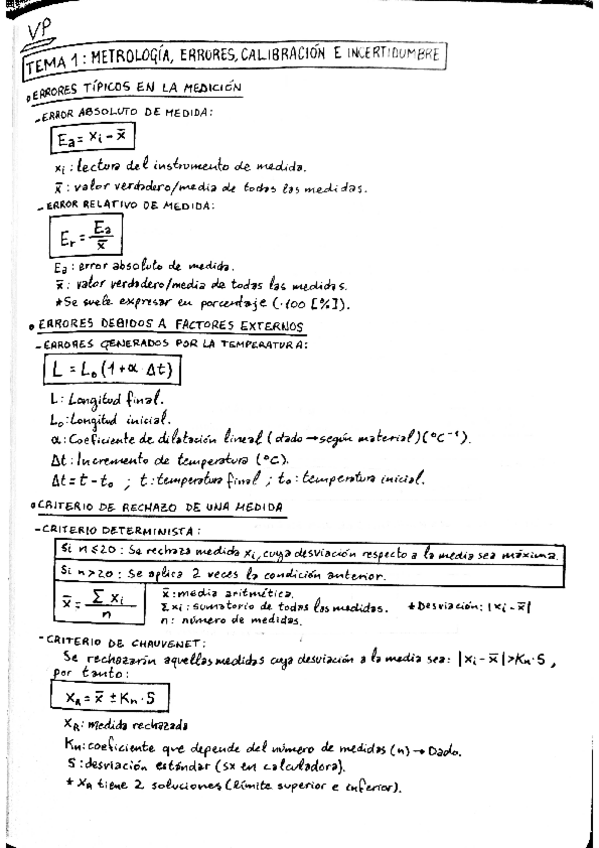 VP
TEMA 1: METROLOGÍA, ERRORES, CALIBRACIÓN E INCERTIDUMBRE
• ERRORES TÍPICOS EN LA MEDICIÓN
- ERROR ABSOLUTO DE MEDIDA:
Ea = xi - x̄
xi: lectura del instrumento de medida.
x̄: valor verdadero/media de todas las medidas.
- ERROR RELATIVO DE MEDIDA:
Er = Ea / x̄
Ea: error absoluto de medida.
x̄: valor verdadero/media de todas las medidas.
* Se suele expresar en porcentaje (·100 [%]).
• ERRORES DEBIDOS A FACTORES EXTERNOS
- ERRORES GENERADOS POR LA TEMPERATURA:
L = L₀ (1 + α · Δt)
L: Longitud final.
L₀: Longitud inicial.
α: Coeficiente de dilatación lineal (dado → según material) (°C⁻¹).
Δt: Incremento de temperatura (°C).
Δt = t - t₀ ; t: temperatura final ; t₀: temperatura inicial.
• CRITERIO DE RECHAZO DE UNA MEDIDA
- CRITERIO DETERMINISTA:
Si n ≤ 20: Se rechaza medida xi, cuya desviación respecto a la media sea máxima.
Si n > 20: Se aplica 2 veces la condición anterior.
x̄ = Σ xi / n
x̄: media aritmética.
Σxi: sumatorio de todas las medidas. * Desviación: |xi - x̄|
n: número de medidas.
- CRITERIO DE CHAUVENET:
Se rechazarán aquellas medidas cuya desviación a la media sea: |xi - x̄| > Kn · S,
por tanto:
XR = x̄ ± Kn · S
XR: medida rechazada
Kn: coeficiente que depende del número de medidas (n) → Dado.
S: desviación estándar (sx en calculadora).
* XR tiene 2 soluciones (límite superior e inferior).